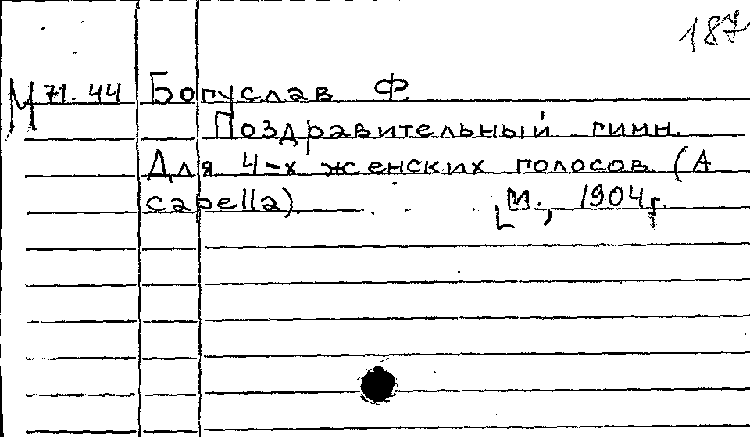 187
М 71.44 Богуслав Ф
Поздравительный гимн.
Для 4-х женских голосов (А
capella)
[М., 1904г.